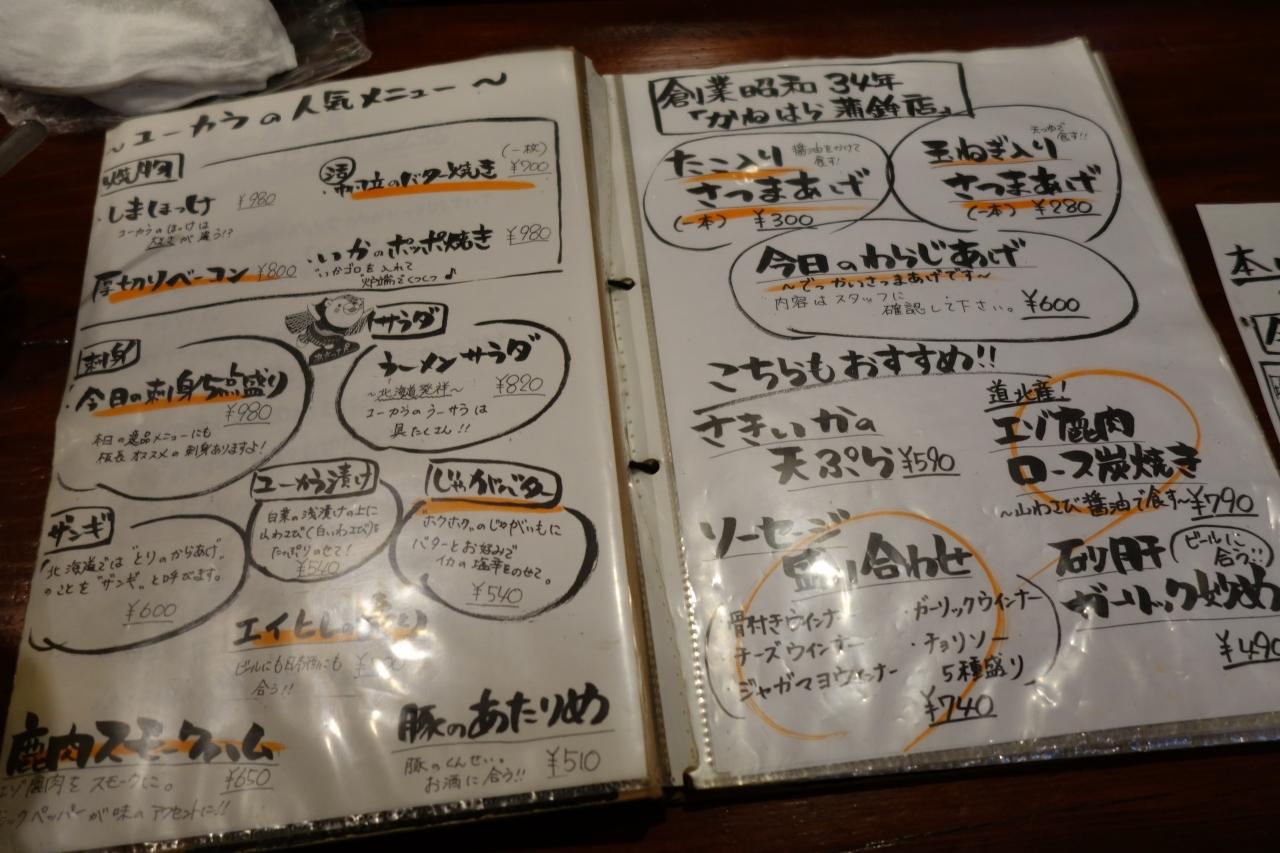 ～ユーカラの人気メニュー～
・しまほっけ ¥980
ユーカラのほっけは
大きさが違う!?
厚切りベーコン ¥800
活
・帆立のバター焼き
(一枚)
¥700
・いかのポッポ焼き ¥980
"いかゴロを入れて
炉端でぐつぐつ♪
刺身
・今日の刺身5点盛り
¥980
本日の逸品メニューにも
板長オススメの刺身ありますよ!
サラダ
ラーメンサラダ
～北海道発祥～ ¥820
ユーカラのラーサラは
具たくさん!!
ザンギ
"北海道では"とりのからあげ"
のことを"ザンギ"と呼びます。
¥600
ユーカラ漬け
白菜の浅漬けの上に
山わさび(白いわさび)を
たっぷりのせて!
¥540
じゃがバター
"ホクホク"のじゃがいもに
バターとお好みで
イカの塩辛をのせて。
¥540
エイヒレの
ビールにも日本酒にも
合う!!
鹿肉スモークハム
エゾ鹿肉をスモークに。 ¥650
ペッパーが味のアクセントに!!
豚のあたりめ
豚のくんせい。
お酒に合う!! ¥510
創業昭和34年
「かねはら蒲鉾店」
たこ入り
醤油をかけて
食す!
さつまあげ
(一本) ¥300
天つゆで
食す!!
玉ねぎ入り
さつまあげ
(一本) ¥280
今日のわらじあげ
～でっかいさつまあげです～
内容はスタッフに
確認して下さい。 ¥600
こちらもおすすめ!!
さきいかの
天ぷら ¥590
道北産!
エゾ鹿肉
ロース炭焼き
～山わさび醤油で食す～ ¥790
ソーセージ
盛り合わせ
・骨付きウインナー
・チーズウインナー
・ジャガマヨウインナー
・ガーリックウインナー
・チョリソー
5種盛り
¥740
砂肝
ビールに
合う!!
ガーリック炒め
¥490
本